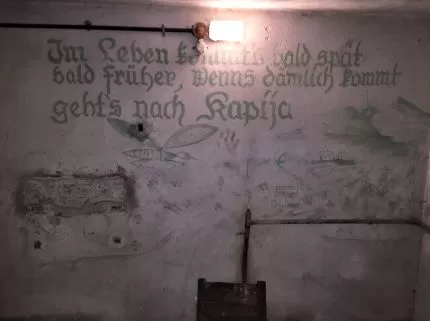 Im Leben kommt's bald spät
bald früher, Wenns dämlich kommt
geht's nach Kapija